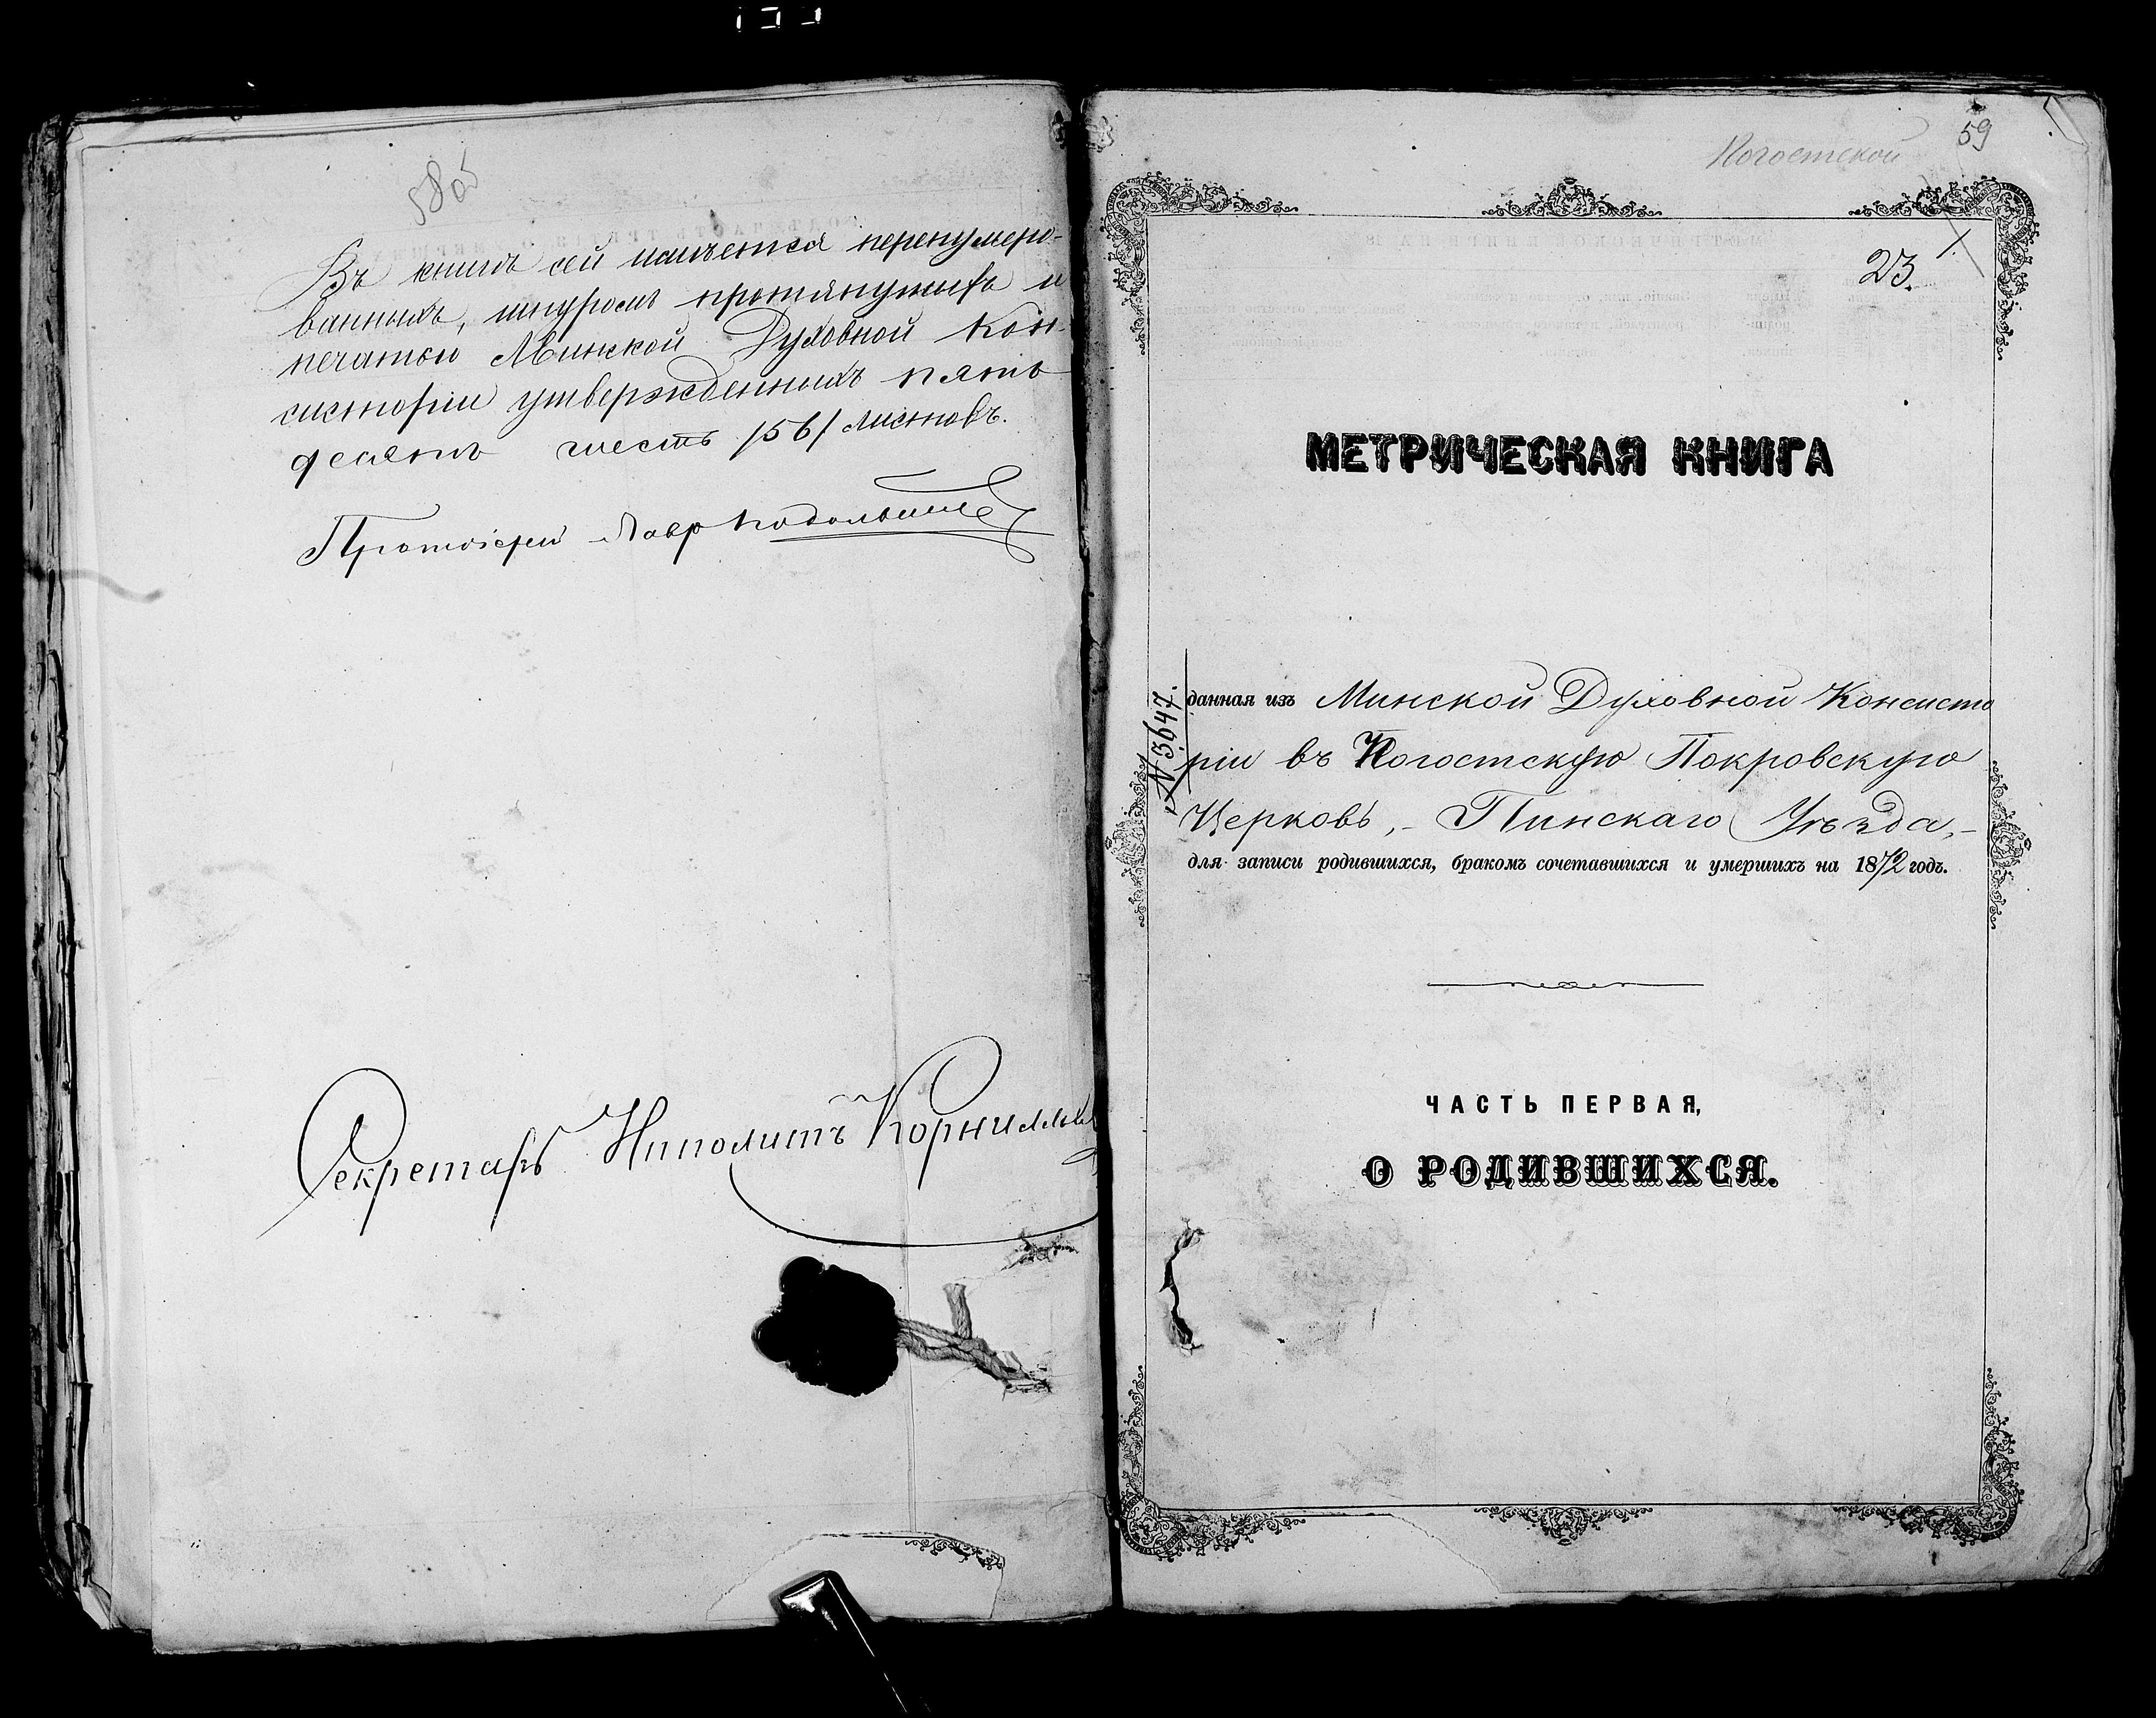 58 об
Въ книгѣ сей имѣется перенумеро-
ванныхъ, шнуромъ протянутыхъ и
печатью Минской Духовной Кон-
систоріи утвержденныхъ пять
десятъ шесть /56/ листовъ.
Протоіерей Лавръ
Секретарь Ипполитъ
59
Погостской
1.
23.
МЕТРИЧЕСКАЯ КНИГА
№ 3647.
данная изъ Минской Духовной Консисто
ріи въ Погостскую Покровскую
Церковь, - Пинскаго Уѣзда, -
для записи родившихся, бракомъ сочетавшихся и умершихъ на 1872 годъ.
ЧАСТЬ ПЕРВАЯ,
О РОДИВШИХСЯ.